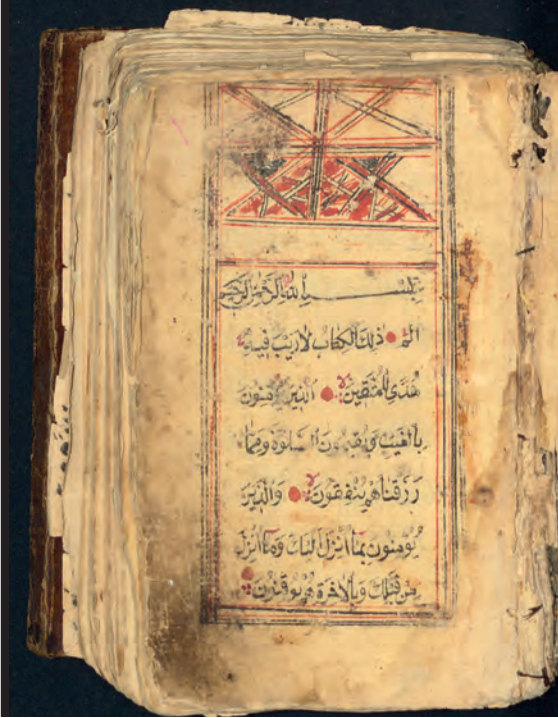 بسم الله الرحمن الرحيم
الم ذلك الكتاب لا ريب فيه
هُدًى لِلْمُتَّقِينَ لا الَّذِينَ يُؤْمِنُونَ
بِالْغَيْبِ وَيُقِيمُونَ الصَّلٰوةَ وَمِمَّا
رَزَقْنَاهُمْ يُنْفِقُونَ لا وَالَّذِينَ
يُؤْمِنُونَ بِمَا اُنْزِلَ اِلَيْكَ وَمَا اُنْزِلَ
مِنْ قَبْلِكَ وَبِالْاٰخِرَةِ هُمْ يُوقِنُونَ